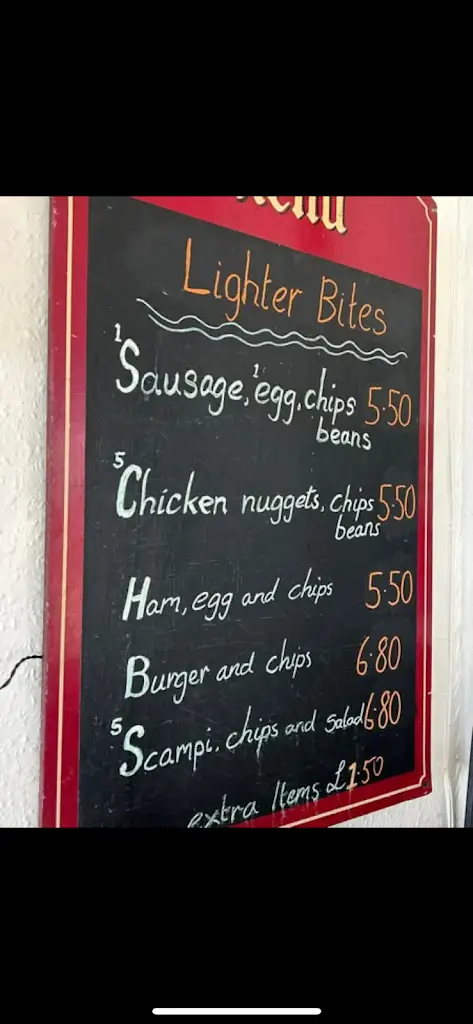 Menu
Lighter Bites
1 Sausage, 1 egg, chips 5·50
beans
5 Chicken nuggets, chips 5·50
beans
Ham, egg and chips 5·50
Burger and chips 6·80
5 Scampi, chips and Salad 6·80
extra Items £1·50